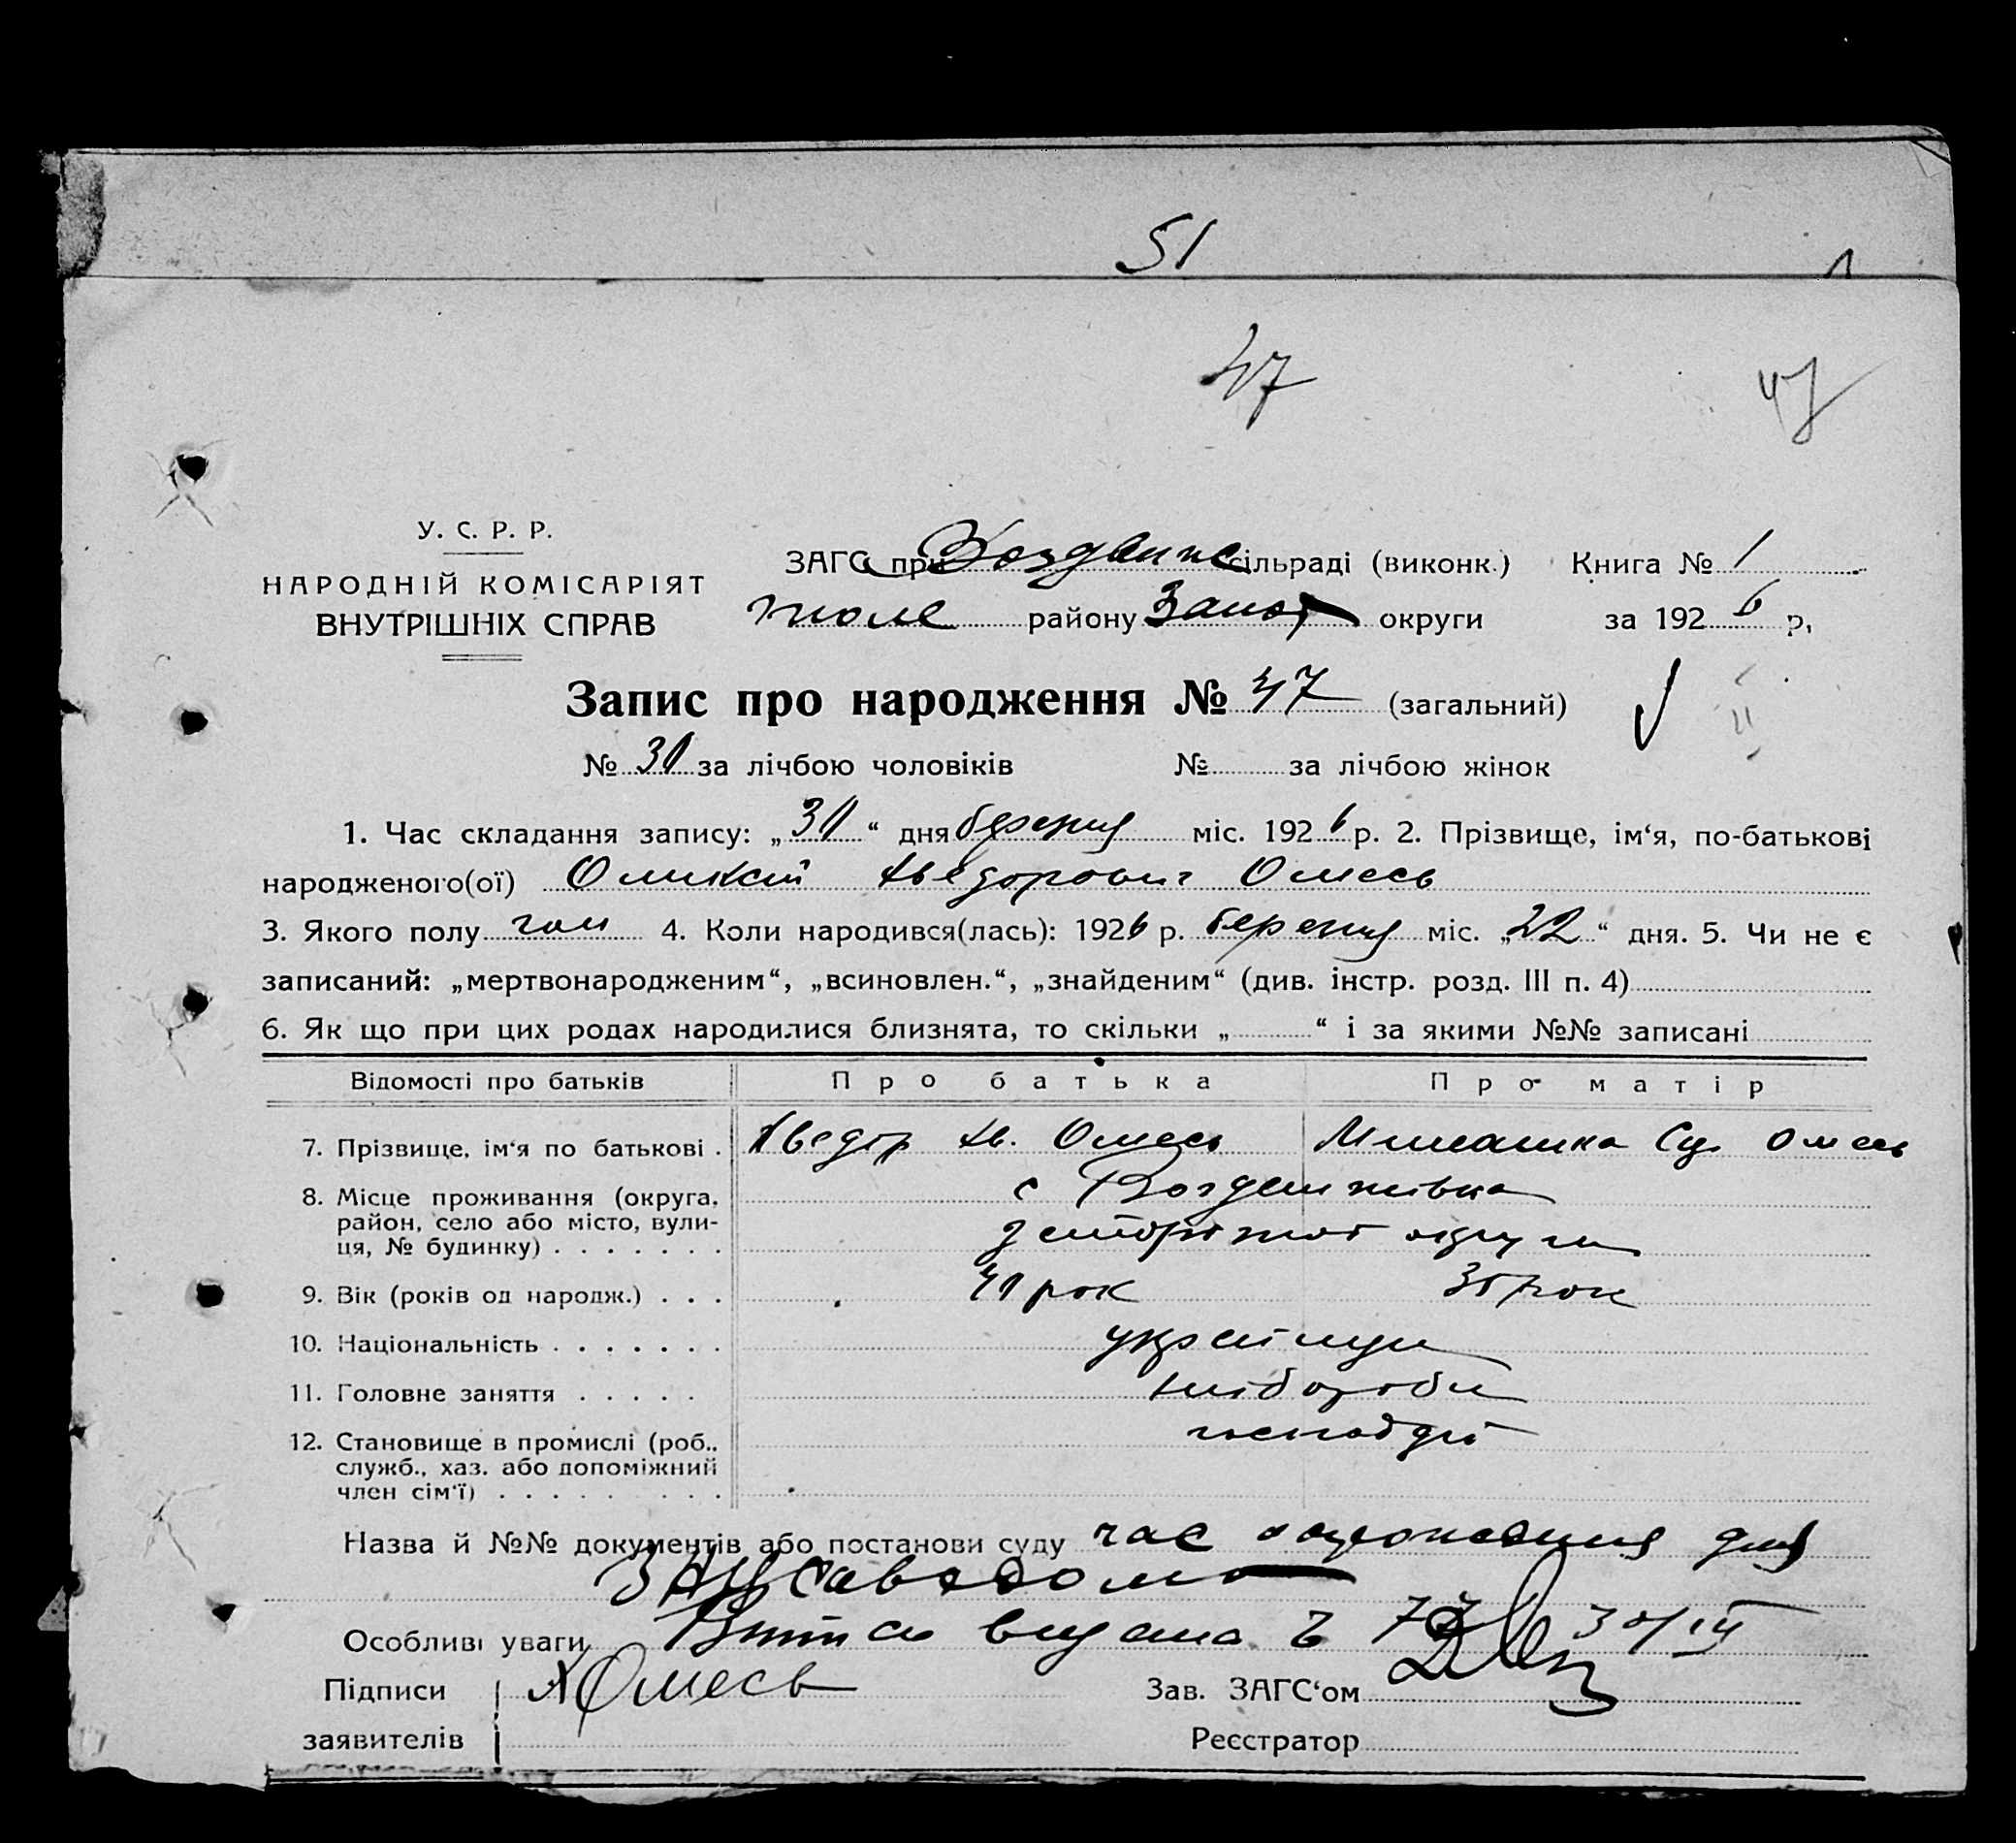 51
47
47
У. С. Р. Р.
НАРОДНІЙ КОМІСАРІЯТ
ВНУТРІШНІХ СПРАВ
ЗАГС при Воздвиж сільраді (виконк.) Книга № 1
району Запор округи за 1926 р,
Запис про народження № 47 (загальний)
№ 31 за лічбою чоловіків № за лічбою жінок
1. Час складання запису: „31“ дня березня міс. 1926 р. 2. Прізвище, ім‘я, по-батькові
народженого(ої) Оликсій Хведорович Омесь
3. Якого полу чол 4. Коли народився(лась): 1926 р. березня міс. „22“ дня. 5. Чи не є
записаний: „мертвонародженим“, „всиновлен.“, „знайденим“ (див. інстр. розд. III п. 4)
6. Як що при цих родах народилися близнята, то скільки „ “ і за якими №№ записані
Відомості про батьків Про батька Про матір
7. Прізвище, ім‘я по батькові . Хведір Ів. Омесь Омесь
8. Місце проживання (округа, с Воздвижівка
район, село або місто, вули-
ця, № будинку) . . . . . . . Запоріжої округи
9. Вік (років од народж.) . . . 41 рок 35 рок
10. Національність . . . . . . . українци
11. Головне заняття . . . . . хлібороби
12. Становище в промислі (роб., господарі
служб., хаз. або допоміжний
член сім‘ї) . . . . . . . . .
Назва й №№ документів або постанови суду час народження
Особливі уваги Витпсь видана 77 30/III
Підписи Омесь Зав. ЗАГС‘ом
заявителів Реєстратор